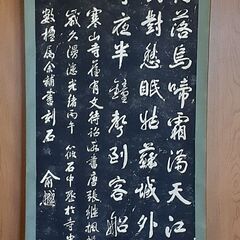 落烏啼霜滿天江
火對愁眠姑蘇城外
寺夜半鐘聲到客船
寒山寺舊有文待詔所書唐張繼楓
歲久漫漶光緒丙午筱石中丞於寺中
數楹屬余補書刻石 俞樾